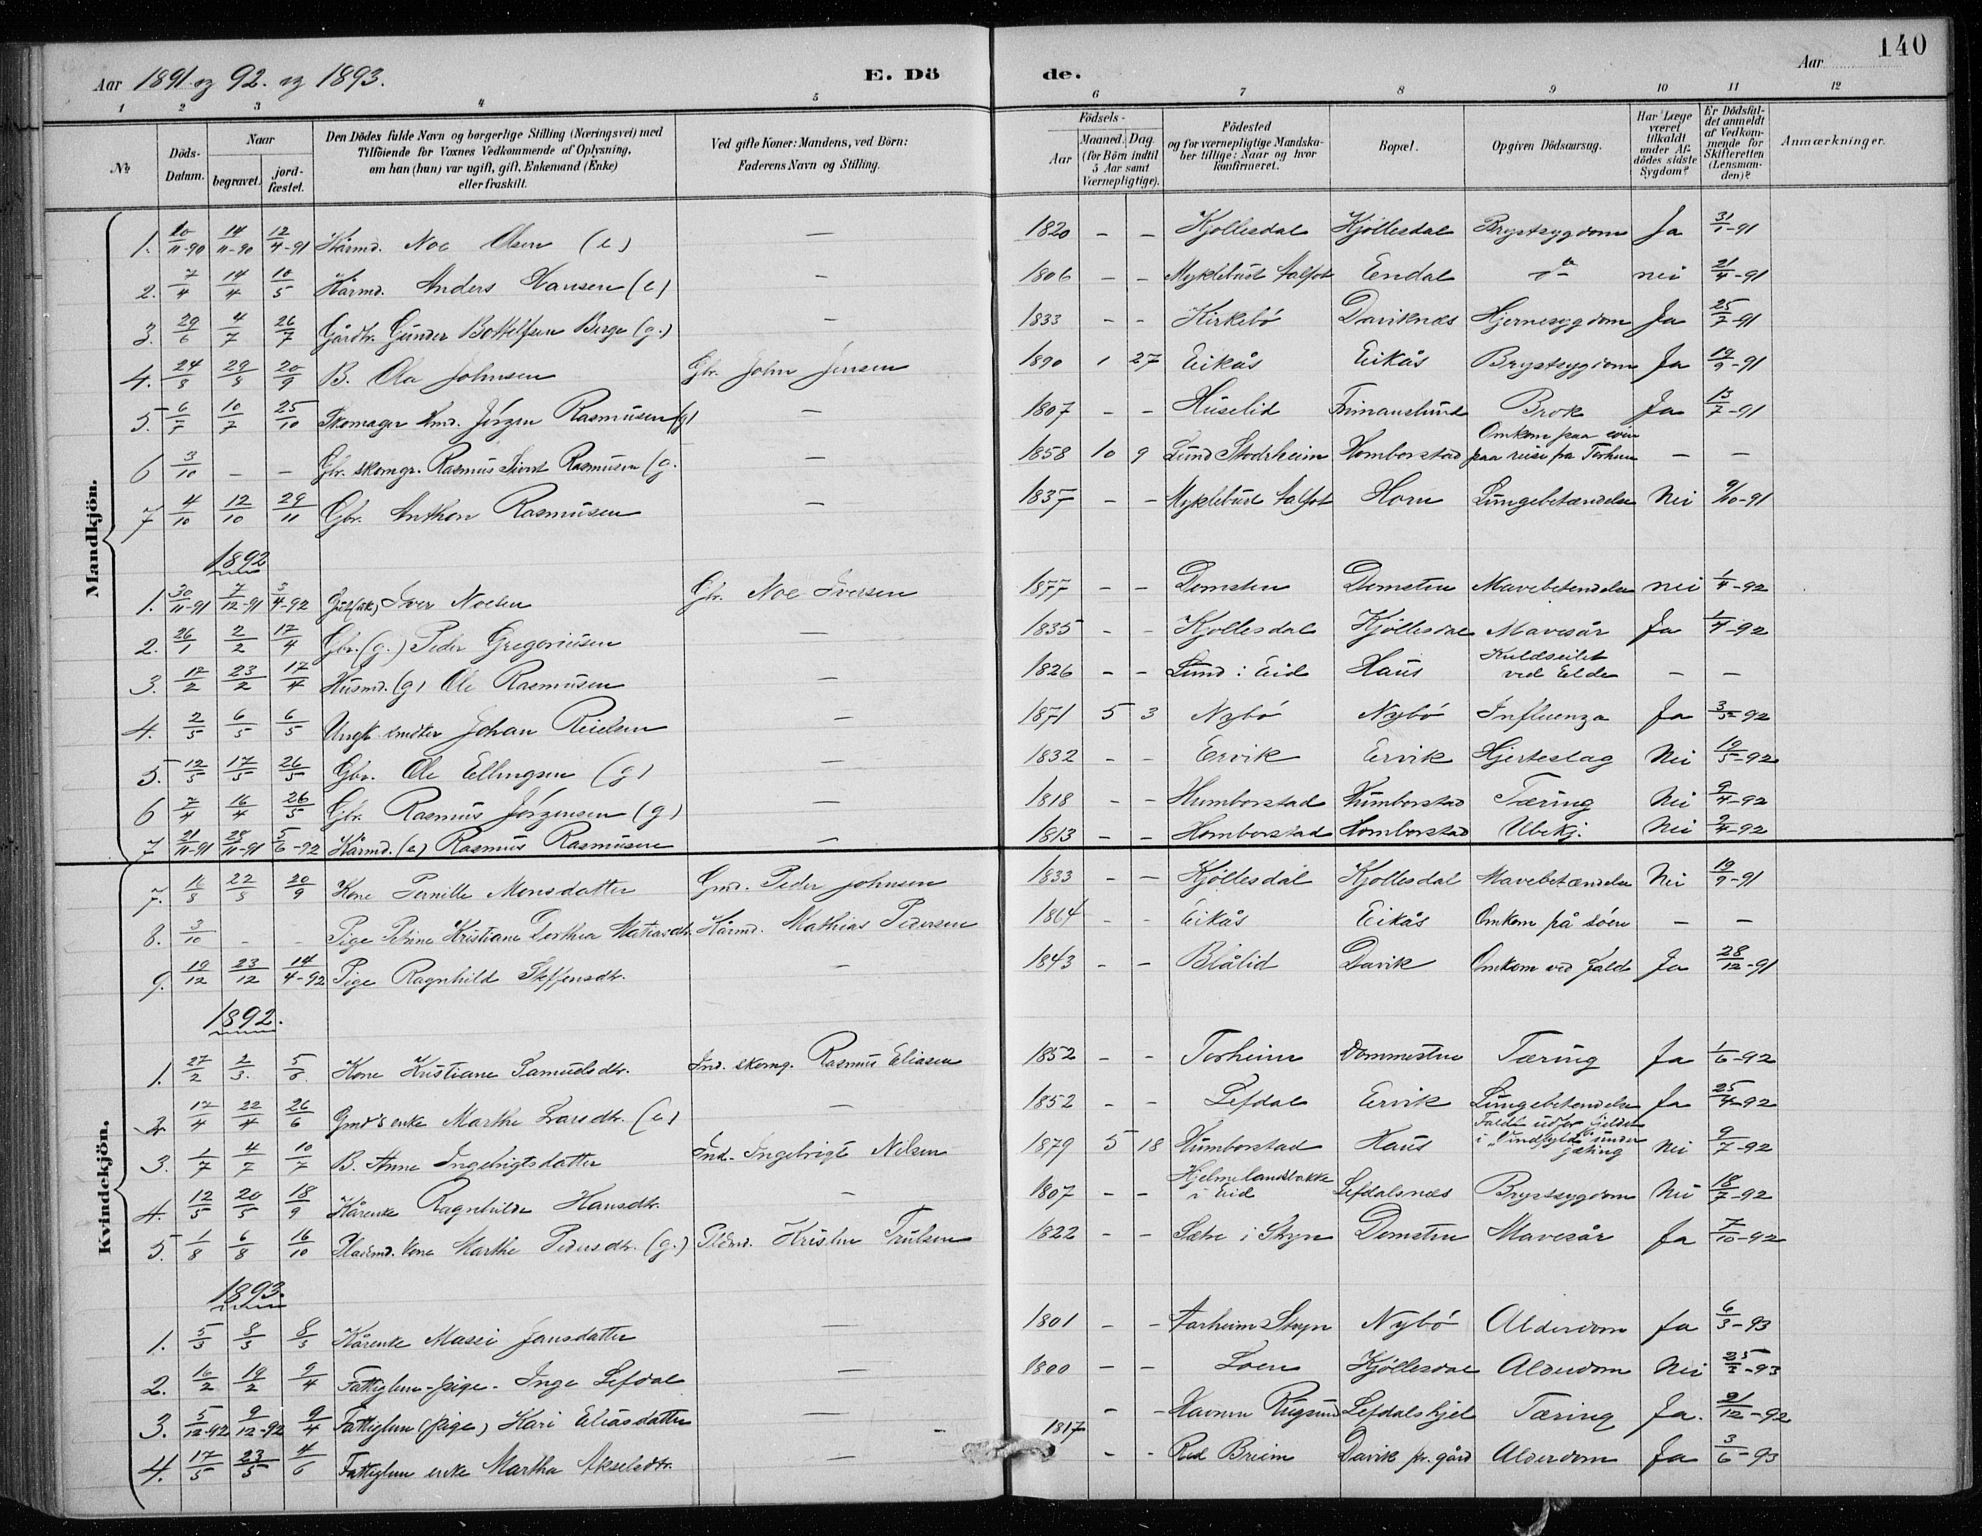 140
Aar 1891 og 92. og 1893. E. Dö de. Aar
1 2 3 4 5 6 7 8 9 10 11 12
№ Döds-Datum. Naar begravet. jordfæstet. Den Dödes fulde Navn og borgerlige Stilling (Næringsvei) med Tilföiende for Voxnes Vedkommende af Oplysning, om han (hun) var ugift, gift, Enkemand (Enke) eller fraskilt. Ved gifte Koner: Mandens, ved Börn: Faderens Navn og Stilling. Födsels- Aar Maaned. Dag. (for Börn indtil 5 Aar samt Værnepligtige). Födested og for værnepligtige Mandskaber tillige: Naar og hvor konfirmeret. Bopæl. Opgiven Dödsaarsag. Har Læge været tilkaldt under Afdödes sidste Sygdom? Er Dödsfaldet anmeldt af Vedkommende for Skifteretten (Lensmanden)? Anmærkninger.
Mandkjön.
1. 10/11-90 14/11-90 12/4-91 Kårmd. Noe Olsen (e) — 1820 - - Kjöllesdal Kjöllesdal Brystsygdom Ja 31/1-91
2. 7/4 14/4 10/5 Kårmd. Anders Hansen (e) - 1806 - - Myklebust Aalfot Endal do nei 21/4-91
3. 29/6 4/7 26/7 Gårdbr. Gunder Bottolfsen Berge (g.) - 1833 - - Kirkebö Daviknes Hjernesygdom Ja 25/7-91
4. 24/8 29/8 20/9 B. Ola Johnsen Gbr. John Jensen 1890 1 27 Eikås Eikås Brystsygdom Ja 19/9-91
5. 6/7 10/7 25/10 Skomager Hmd. Jörgen Rasmusen (g) — 1807 - - Huselid Brok Ja 15/7-91
6 3/10 - - Gbr. skomgr. Rasmus Sivert Rasmusen (g. — 1858 10 9 Lund Stodrheim Homborstad Omkom paa paa reise fra Torheim — —
7 4/10 12/10 29/11 Gbr. Anthon Rasmusen — 1837 - - Myklebust Aalfot Horn Lungebetændelse Nei 9/10-91
1892
1. 30/11-91 7/12-91 3/4-92 Iver Noesen Gbr. Noe Iversen 1877 - - Domsten Domsten Mavebetendelse nei 1/4-92
2. 26/1 2/2 17/4 Gbr. (g.) Peder Gregoriusen — 1835 - - Kjöllesdal Kjöllesdal Mavesår Ja 1/4-92
3. 12/2 23/2 17/4 Husmd. (g) Ole Rasmusen — 1826 - - Lund i Eid Haus Kuldseilet ved Elde — —
4. 2/5 6/5 6/5 Ungk. Johan Reielsen — 1871 5 3 Nybö Nybö Influenza Ja 3/5-92
5. 12/5 17/5 26/5 Gbr. Ole Ellingsen (g) — 1832 - - Ervik Ervik Hjerteslag Nei 19/5-92
6 7/4 16/4 26/5 Gbr. Rasmus Jörgensen (g) — 1818 - - Humborstad Humborstad Tæring Nei 9/4-92
7 21/11-91 28/11-91 5/6-92 Kårmd. (e) Rasmus Rasmusen — 1813 - - Homborstad Homborstad Ubekj. Nei 9/4-92
Kvindekjön.
7. 16/8 22/8 20/9 Kone Pernille Monsdatter Gmd. Peder Johnsen 1833 - - Kjöllesdal Kjöllesdal Mavebetændelse Nei 19/9-91
8. 3/10 - - Pige Petrine Kristiane Dorthea Matiasdtr. Kårmd. Mathias Pedersen 1864 - - Eikås Eikås Omkom på söen — —
9. 19/12 23/12 14/4-92 Pige Ragnhild Steffensdtr. — 1843 - - Blålid Davik Omkom ved fald Ja 28/12-91
1892.
1. 27/2 2/3. 5/6 Kone Kristiane Samuelsdtr. Ind. skomg. Rasmus Eliasen 1852 - - Torheim Dommesten Tæring Ja 1/6-92
2. 17/4 22/4 26/6 Gmds enke Marthe Larsdtr. (e) — 1852 - - Lefdal Ervik Lungebetendelse Ja 25/4-92
3. 1/7 4/7 10/7 B. Anne Ingebrigtsdatter Ind. Ingebrigt Nilsen 1879 5 18 Humborstad Haus Faldt udfor fjeldet i under gjæting nei 9/7-92
4. 12/5 20/5 18/9 Kårenke Ragnhilde Hansdtr. — 1807 - - Hjelmelandsbakke i Eid Lefdalsnes Brystsygdom Nei 18/7-92
5. 1/8 6/8 16/10 Pladsmd. kone Marthe Pedersdtr. (g.) Pldsmd. Kristen Trulsen 1822 - - Sætre i Stryn Domsten Mavesår Ja 7/10-92
1893.
1. 5/3 8/3 8/3 Kårenke Masei Jansdatter — 1801 - - Aarheim Stryn Nybö Alderdom Ja 6/3-93
2. 16/2 19/2 9/4 Fattiglem-pige. Inge Lefdal — 1800 - - Loen Kjöllesdal Alderdom Nei 25/2-93
3. 5/12-92 9/12-92 9/4 Fattiglem (pige) Kari Eliasdatter - 1817 - - Havnen Rugsund Lefdalskjel Tæring Ja. 21/12-92
4. 17/5 23/5 4/6 Fattiglem enke Martha Akselsdtr. — - - Red Breim Davik pr. gård Alderdom Ja 3/6-93